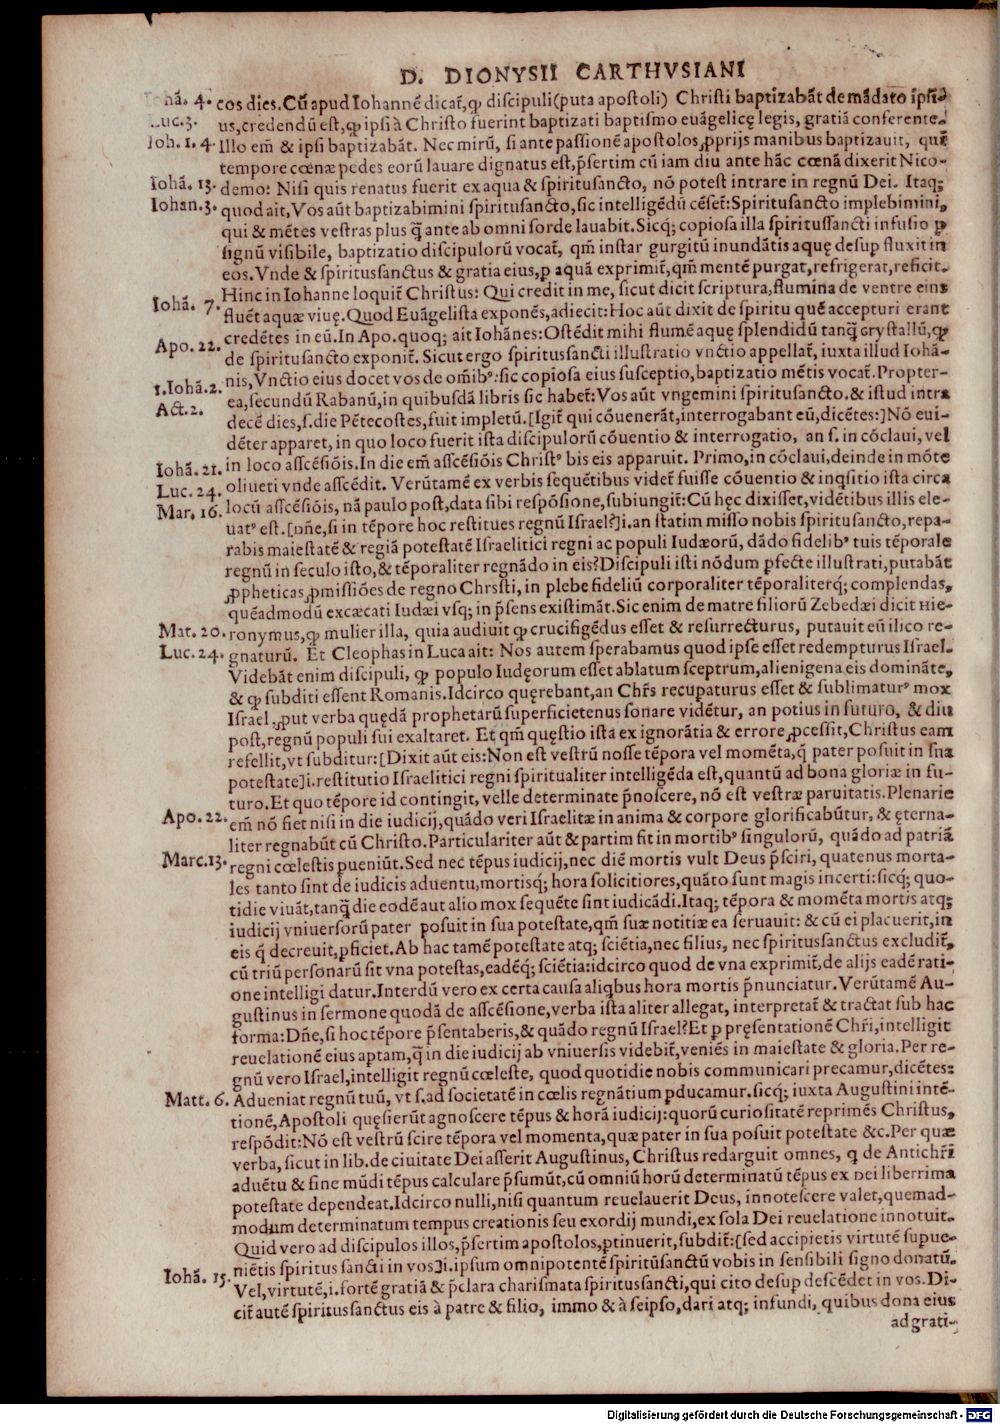 D. DIONYSII CARTHVSIANI
Iohã. 4. cos dies. Cũ apud Iohannẽ dicat̃, ꝙ discipuli (puta apostoli) Christi baptizabãt de mãdato ipsi⸗
Luc. 3. us, credendũ est, ꝙ ipsi à Christo fuerint baptizati baptismo euãgelicę legis, gratiã conferente.
Ioh. 1. 4. Illo em̃ & ipsi baptizabãt. Nec mirũ, si ante passionẽ apostolos ꝓprijs manibus baptizauit, quẽ
tempore cœnæ pedes eorũ lauare dignatus est, p̃sertim cũ iam diu ante hãc cœnã dixerit Nico⸗
Iohã. 13. demo: Nisi quis renatus fuerit ex aqua & spiritusancto, nõ potest intrare in regnũ Dei. Itaq;
Iohan. 3. quod ait, Vos aũt baptizabimini spiritusancto, sic intelligẽdũ cẽset̃: Spiritusancto implebimini,
qui & mẽtes vestras plus q̃ ante ab omni sorde lauabit. Sicq; copiosa illa spiritussancti infusio ꝑ
signũ visibile, baptizatio discipulorũ vocat̃, qm̃ instar gurgitũ inundãtis aquę desup fluxit in
eos. Vnde & spiritussanctus & gratia eius, ꝑ aquã exprimit̃, qm̃ mentẽ purgat, refrigerat, reficit.
Hinc in Iohanne loquit̃ Christus: Qui credit in me, sicut dicit scriptura, flumina de ventre eius
Iohã. 7. fluẽt aquæ viuę. Quod Euãgelista exponẽs, adiecit: Hoc aũt dixit de spiritu quẽ accepturi erant
credẽtes in eũ. In Apo. quoq; ait Iohãnes: Ostẽdit mihi flumẽ aquę splendidũ tanq̃ crystallũ, ꝙ
Apo. 22. de spiritusancto exponit̃. Sicut ergo spiritussancti illustratio vnctio appellat̃, iuxta illud Iohã⸗
1. Iohã. 2. nis, Vnctio eius docet vos de om̃ibꝰ: sic copiosa eius susceptio, baptizatio mẽtis vocat̃. Propter⸗
ea, secundũ Rabanũ, in quibusdã libris sic habet̃: Vos aũt vngemini spiritusancto. & istud intra
Act. 2. decẽ dies, s. die Pẽtecostes, fuit impletũ. [Igit̃ qui cõuenerãt, interrogabant eũ, dicẽtes:] Nõ eui⸗
dẽter apparet, in quo loco fuerit ista discipulorũ cõuentio & interrogatio, an s. in cõclaui, vel
Iohã. 21. in loco asscẽsiõis. In die em̃ asscẽsiõis Christꝰ bis eis apparuit. Primo, in cõclaui, deinde in mõte
Luc. 24. oliueti vnde asscẽdit. Verũtamẽ ex verbis sequẽtibus videt̃ fuisse cõuentio & inq̃sitio ista circa
Mar. 16. locũ asscẽsiõis, nã paulo post, data sibi respõsione, subiungit̃: Cũ hęc dixisset, vidẽtibus illis ele⸗
uatꝰ est. [Dñe, si in tẽpore hoc restitues regnũ Israel?] i. an statim misso nobis spiritusancto, repa⸗
rabis maiestatẽ & regiã potestatẽ Israelitici regni ac populi Iudæorũ, dãdo fidelibꝰ tuis tẽporale
regnũ in seculo isto, & tẽporaliter regnãdo in eis? Discipuli isti nõdum ꝑfecte illustrati, putabãt
ꝓpheticas ꝓmissiões de regno Chrsti, in plebe fideliũ corporaliter tẽporaliterq; complendas,
quẽadmodũ excæcati Iudæi vsq; in p̃sens existimãt. Sic enim de matre filiorũ Zebedæi dicit Hie⸗
Mat. 20. ronymus, ꝙ mulier illa, quia audiuit ꝙ crucifigẽdus esset & resurrecturus, putauit eũ ilico re⸗
Luc. 24. gnaturũ. Et Cleophas in Luca ait: Nos autem sperabamus quod ipse esset redempturus Israel.
Videbãt enim discipuli, ꝙ populo Iudęorum esset ablatum sceptrum, alienigena eis dominãte,
& ꝙ subditi essent Romanis. Idcirco quęrebant, an Chr̃s recupaturus esset & sublimaturꝰ mox
Israel ꝓut verba quędã prophetarũ superficietenus sonare vidẽtur, an potius in futuro, & diu
post, regnũ populi sui exaltaret. Et qm̃ quęstio ista ex ignorãtia & errore ꝓcessit, Christus eam
refellit, vt subditur: [Dixit aũt eis: Non est vestrũ nosse tẽpora vel momẽta, q̃ pater posuit in sua
potestate] i. restitutio Israelitici regni spiritualiter intelligẽda est, quantũ ad bona gloriæ in fu⸗
turo. Et quo tẽpore id contingit, velle determinate p̃noscere, nõ est vestræ paruitatis. Plenarie
Apo. 22. em̃ nõ fiet nisi in die iudicij, quãdo veri Israelitæ in anima & corpore glorificabũtur, & ęterna⸗
liter regnabũt cũ Christo. Particulariter aũt & partim fit in mortibꝰ singulorũ, quãdo ad patriã
Marc. 13. regni cœlestis pueniũt. Sed nec tẽpus iudicij, nec diẽ mortis vult Deus p̃sciri, quatenus morta⸗
les tanto sint de iudicis aduentu, mortisq; hora solicitiores, quãto sunt magis incerti: sicq; quo⸗
tidie viuãt, tanq̃ die eodẽ aut alio mox sequẽte sint iudicãdi. Itaq; tẽpora & momẽta mortis atq;
iudicij vniuersorũ pater posuit in sua potestate, qm̃ suæ notitiæ ea seruauit: & cũ ei placuerit, in
eis q̃ decreuit, ꝑficiet. Ab hac tamẽ potestate atq; sciẽtia, nec filius, nec spiritussanctus excludit̃,
cũ triũ personarũ sit vna potestas, eadẽq; sciẽtia: idcirco quod de vna exprimit̃, de alijs eadẽ rati⸗
one intelligi datur. Interdũ vero ex certa causa aliqbus hora mortis p̃nunciatur. Verũtamẽ Au⸗
gustinus in sermone quodã de asscẽsione, verba ista aliter allegat, interpretat̃ & tractat sub hac
forma: Dñe, si hoc tẽpore p̃sentaberis, & quãdo regnũ Israel? Et ꝑ pręsentationẽ Chr̃i, intelligit
reuelationẽ eius aptam, q̃ in die iudicij ab vniuersis videbit̃, veniẽs in maiestate & gloria. Per re⸗
gnũ vero Israel, intelligit regnũ cœleste, quod quotidie nobis communicari precamur, dicẽtes:
Matt. 6. Adueniat regnũ tuũ, vt s. ad societatẽ in cœlis regnãtium ꝑducamur. sicq; iuxta Augustini intẽ⸗
tionẽ, Apostoli quęsierũt agnoscere tẽpus & horã iudicij: quorũ curiositatẽ reprimẽs Christus,
respõdit: Nõ est vestrũ scire tẽpora vel momenta, quæ pater in sua posuit potestate &c. Per quæ
verba, sicut in lib. de ciuitate Dei asserit Augustinus, Christus redarguit omnes, q de Antichr̃i
aduẽtu & fine mũdi tẽpus calculare p̃sumũt, cũ omniũ horũ determinatũ tẽpus ex Dei liberrima
potestate dependeat. Idcirco nulli, nisi quantum reuelauerit Deus, innotescere valet, quemad⸗
modum determinatum tempus creationis seu exordij mundi, ex sola Dei reuelatione innotuit.
Quid vero ad discipulos illos, p̃sertim apostolos, ꝑtinuerit, subdit̃: [sed accipietis virtutẽ supue⸗
niẽtis spiritus sancti in vos] i. ipsum omnipotentẽ spiritũsanctũ vobis in sensibili signo donatũ.
Iohã. 15. Vel, virtutẽ, i. fortẽ gratiã & p̃clara charismata spiritussancti, qui cito desup descẽdet in vos. Di⸗
cit̃ autẽ spiritussanctus eis à patre & filio, immo & à seipso, dari atq; infundi, quibus dona eius
ad grati⸗
Digitalisierung gefördert durch die Deutsche Forschungsgemeinschaft - DFG